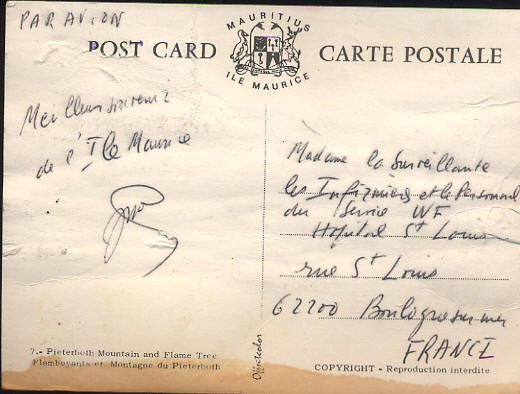 PAR AVION
MAURITIUS
POST CARD
ILE MAURICE
CARTE POSTALE
Meilleurs souvenirs
de l'Ile Maurice
Madame la Surveillante
les Infirmières et le Personnel
du Service
Hôpital St Louis
rue St Louis
62200 Boulogne sur mer
FRANCE
7.- Pieterboth Mountain and Flame Tree
Flamboyants et Montagne du Pieterboth
Offsetcolor
COPYRIGHT - Reproduction interdite